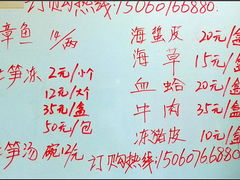 订购热线:15060766880
章鱼 14/两
海蜇皮 20元/盒
海草 15元/盒
笋冻 2元/小个
12元/大个
35元/盒
50元/包
血蛤 20元/盒
牛肉 35元/盒
冻猪皮 10元/盒
笋汤 碗12元
订购热线:15060766880